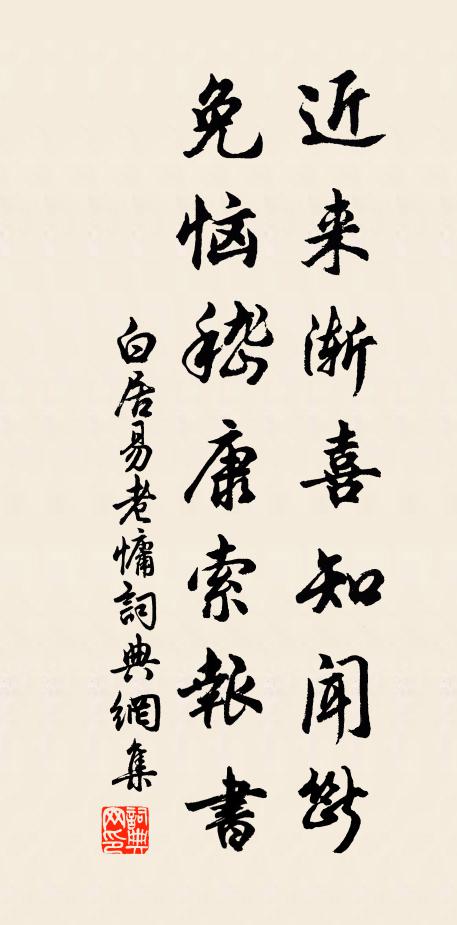 近来渐喜知闻断
免恼嵇康索报書
白居易老慵詞典網集
詞典網印